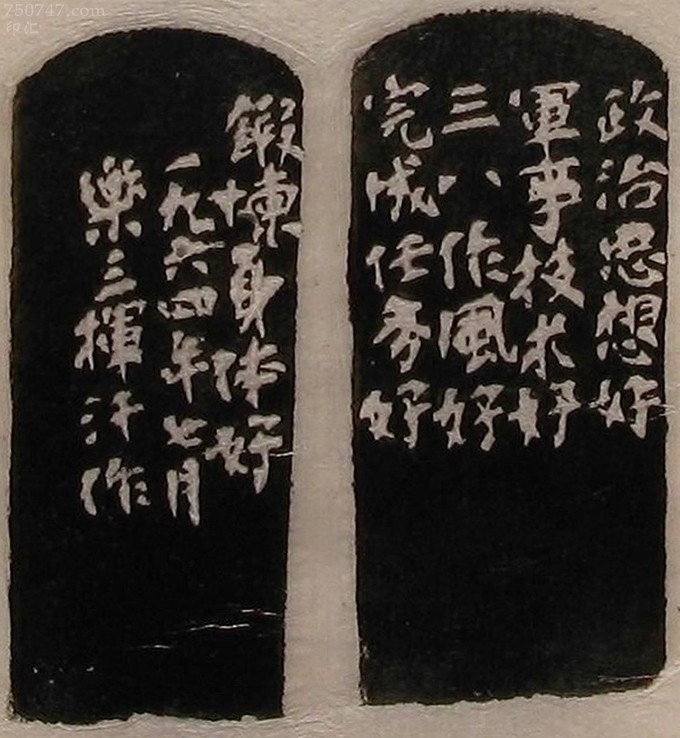 750747.com
印汇
政治思想好
軍事技术好
三八作風好
完成任务好
鍛煉身体好
一九六四年七月
樂三揮汗作